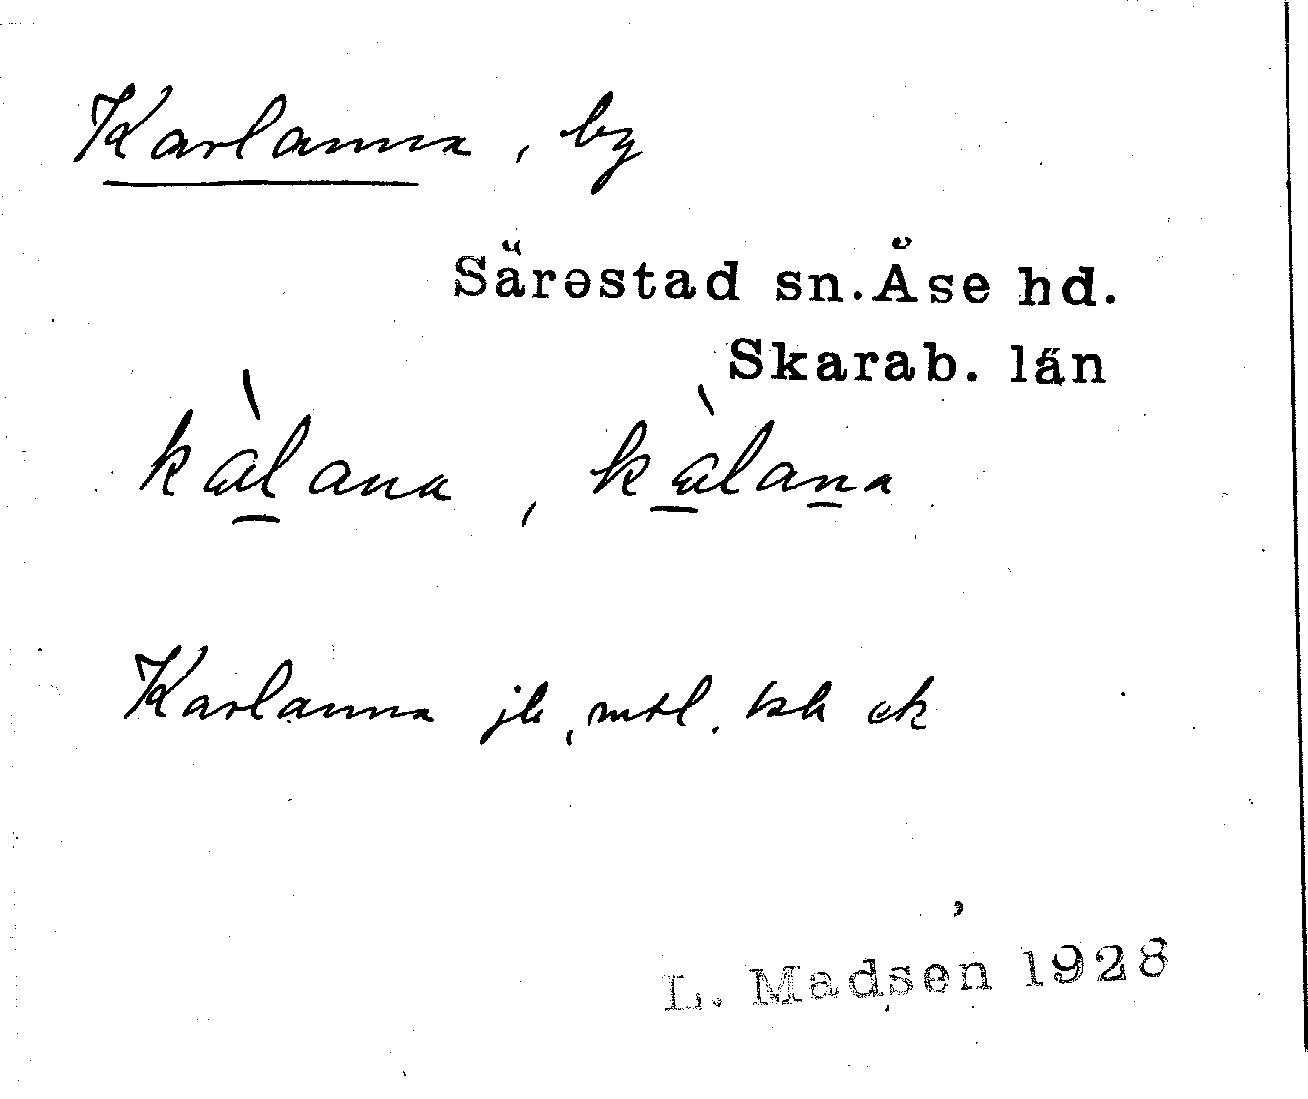 Karlanna, by
Särestad sn. Åse hd.
Skarab. län
kàlana, kàlana
Karlanna jb, mtl. tsk ek
L. Madsen 1928